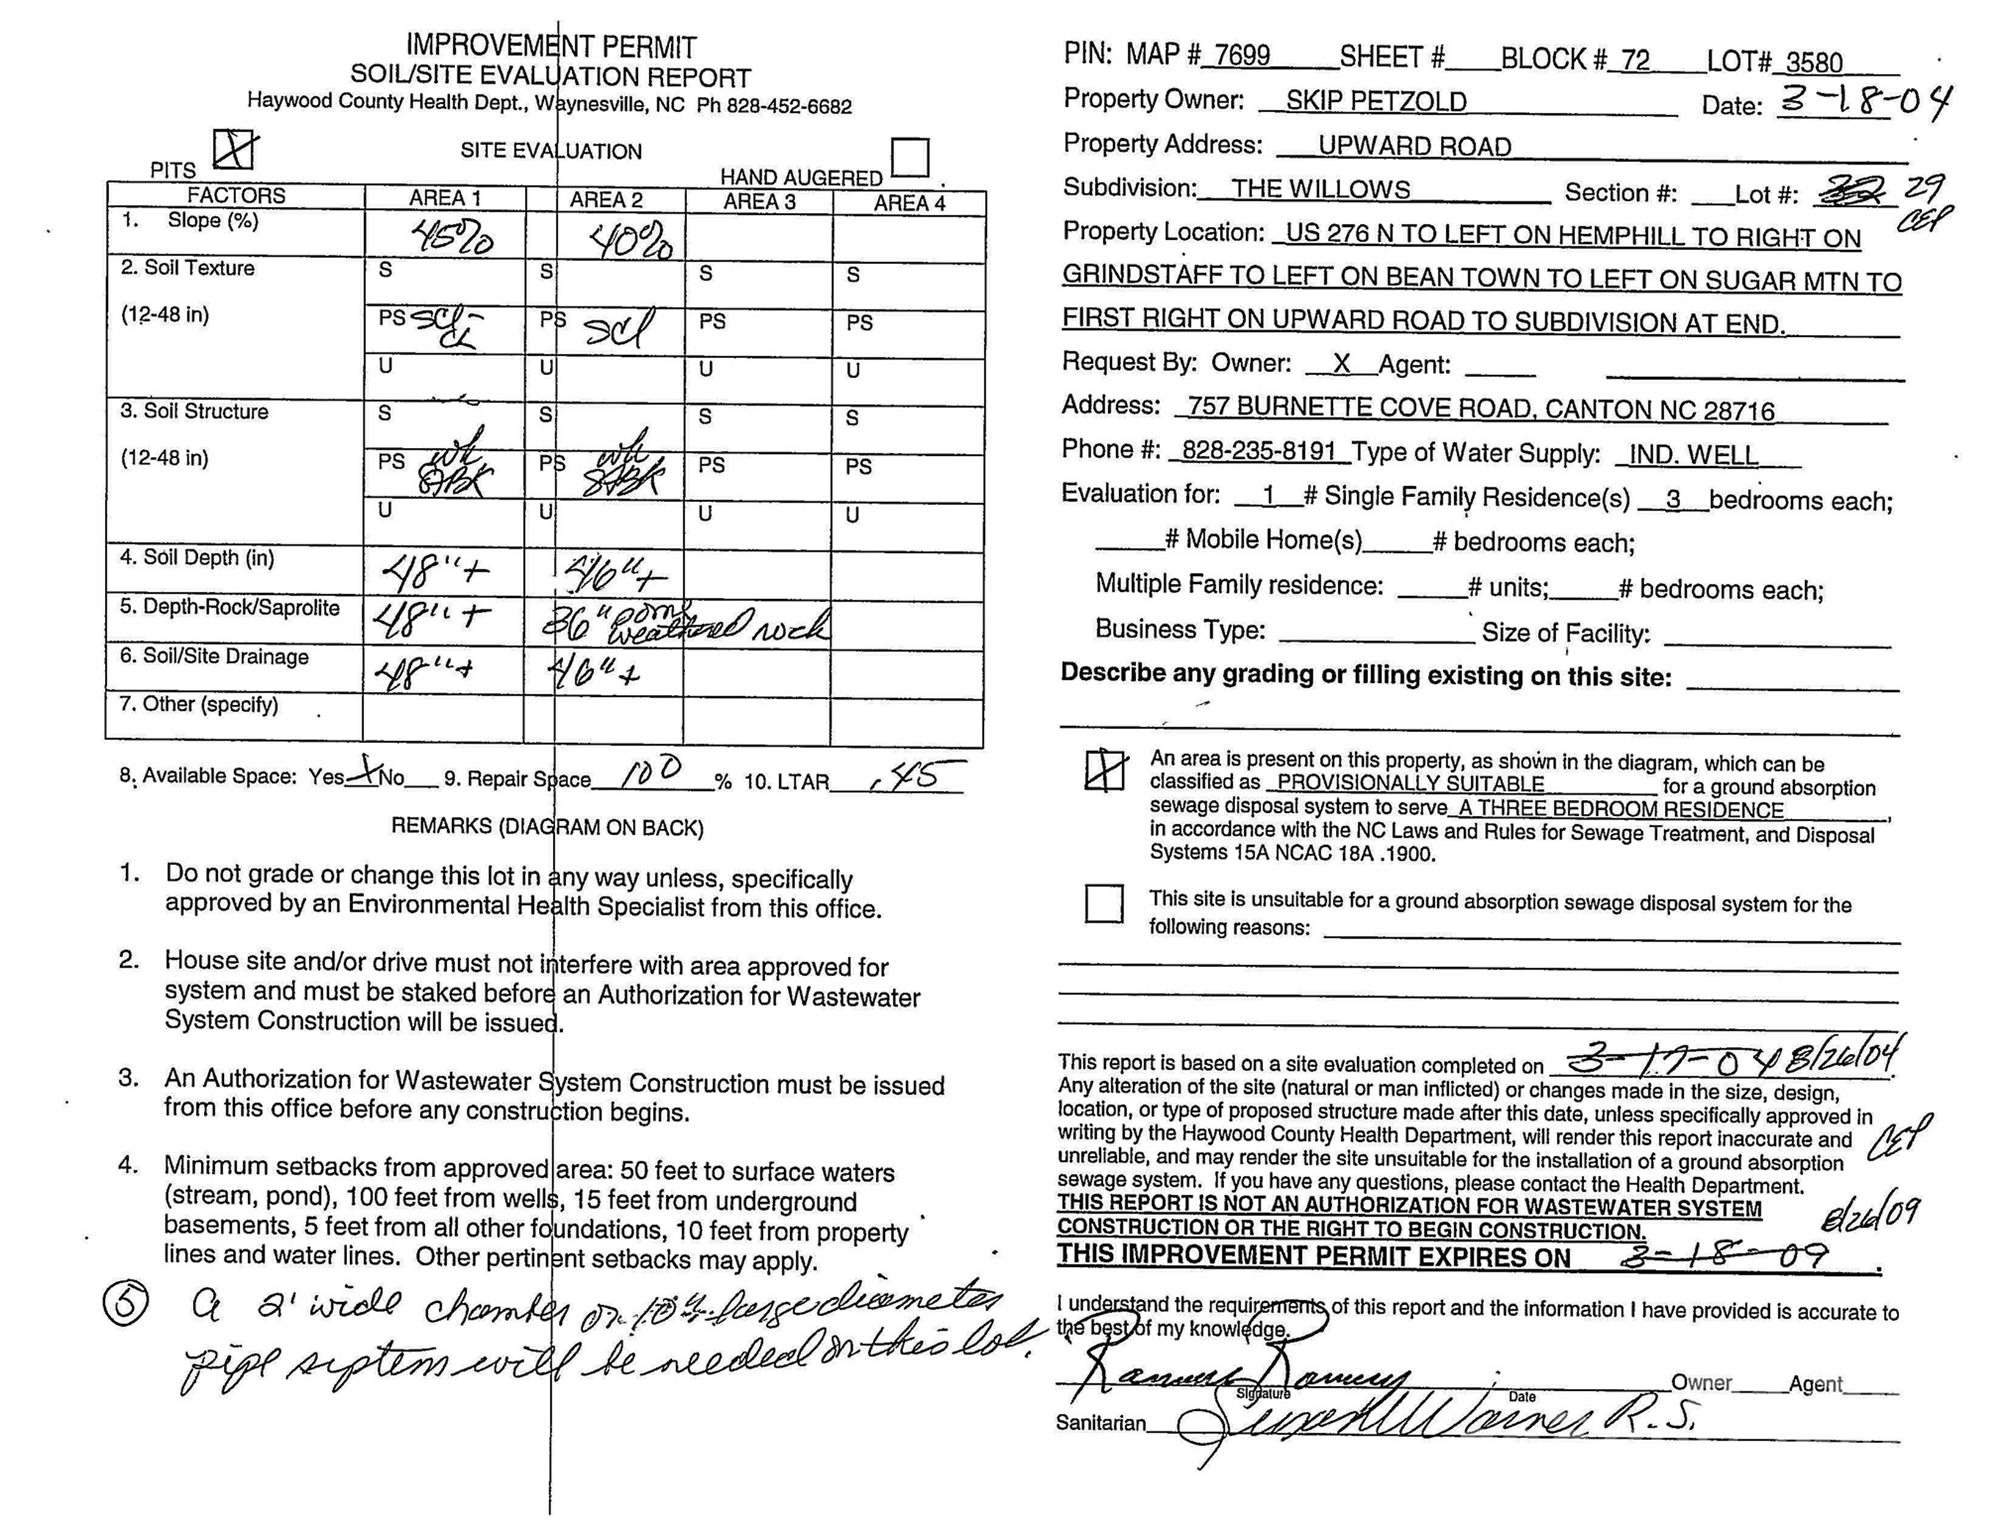 IMPROVEMENT PERMIT
SOIL/SITE EVALUATION REPORT
Haywood County Health Dept., Waynesville, NC Ph 828-452-6682
PITS X SITE EVALUATION HAND AUGERED
FACTORS AREA 1 AREA 2 AREA 3 AREA 4
1. Slope (%) 45% 40%
2. Soil Texture S S S S
(12-48 in) PS SCL- CL PS SCL PS PS
U U U U
3. Soil Structure S S S S
(12-48 in) PS wk SBK PS wk SBK PS PS
U U U U
4. Soil Depth (in) 48"+ 46"+
5. Depth-Rock/Saprolite 48"+ 36" some weathered rock
6. Soil/Site Drainage 48"+ 46"+
7. Other (specify)
8. Available Space: Yes X No 9. Repair Space 100 % 10. LTAR .45
REMARKS (DIAGRAM ON BACK)
1. Do not grade or change this lot in any way unless, specifically
approved by an Environmental Health Specialist from this office.
2. House site and/or drive must not interfere with area approved for
system and must be staked before an Authorization for Wastewater
System Construction will be issued.
3. An Authorization for Wastewater System Construction must be issued
from this office before any construction begins.
4. Minimum setbacks from approved area: 50 feet to surface waters
(stream, pond), 100 feet from wells, 15 feet from underground
basements, 5 feet from all other foundations, 10 feet from property
lines and water lines. Other pertinent setbacks may apply.
5 A 2' wide chamber or 10" large diameter
pipe septem will be needed on this lot.
PIN: MAP # 7699 SHEET # BLOCK # 72 LOT# 3580
Property Owner: SKIP PETZOLD Date: 3-18-04
Property Address: UPWARD ROAD
Subdivision: THE WILLOWS Section #: Lot #: 29
CEP
Property Location: US 276 N TO LEFT ON HEMPHILL TO RIGHT ON
GRINDSTAFF TO LEFT ON BEAN TOWN TO LEFT ON SUGAR MTN TO
FIRST RIGHT ON UPWARD ROAD TO SUBDIVISION AT END.
Request By: Owner: X Agent:
Address: 757 BURNETTE COVE ROAD, CANTON NC 28716
Phone #: 828-235-8191 Type of Water Supply: IND. WELL
Evaluation for: 1 # Single Family Residence(s) 3 bedrooms each;
# Mobile Home(s) # bedrooms each;
Multiple Family residence: # units; # bedrooms each;
Business Type: Size of Facility:
Describe any grading or filling existing on this site:
X An area is present on this property, as shown in the diagram, which can be
classified as PROVISIONALLY SUITABLE for a ground absorption
sewage disposal system to serve A THREE BEDROOM RESIDENCE,
in accordance with the NC Laws and Rules for Sewage Treatment, and Disposal
Systems 15A NCAC 18A .1900.
This site is unsuitable for a ground absorption sewage disposal system for the
following reasons:
This report is based on a site evaluation completed on 3-17-04 8/26/04.
Any alteration of the site (natural or man inflicted) or changes made in the size, design,
location, or type of proposed structure made after this date, unless specifically approved in
writing by the Haywood County Health Department, will render this report inaccurate and
CEP
unreliable, and may render the site unsuitable for the installation of a ground absorption
sewage system. If you have any questions, please contact the Health Department.
THIS REPORT IS NOT AN AUTHORIZATION FOR WASTEWATER SYSTEM
CONSTRUCTION OR THE RIGHT TO BEGIN CONSTRUCTION.
8/26/09
THIS IMPROVEMENT PERMIT EXPIRES ON 3-18-09.
I understand the requirements of this report and the information I have provided is accurate to
the best of my knowledge.
Owner Agent
Signature Date
Sanitarian Warner R.S.